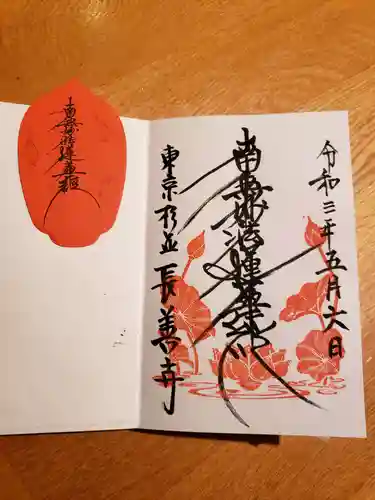 南無妙法蓮華経
令和三年五月六日
南無妙法蓮華経
東京杉並長善寺